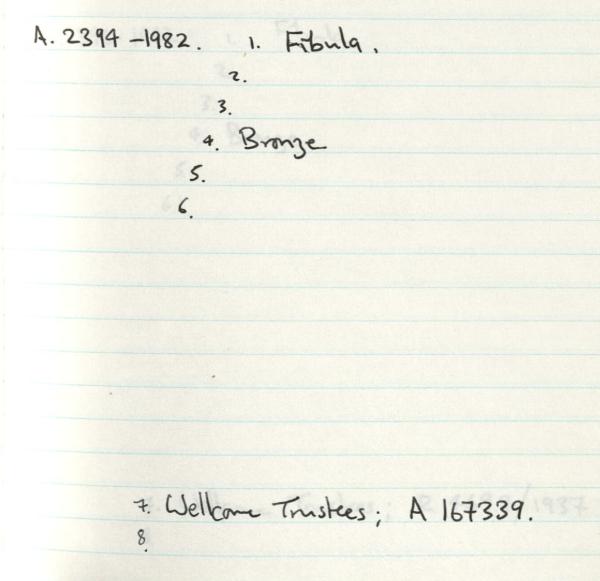 A. 2394-1982. 1. Fibula.
2.
3.
4. Bronze
5.
6.
7. Wellcome Trustees; A 167339.
8.